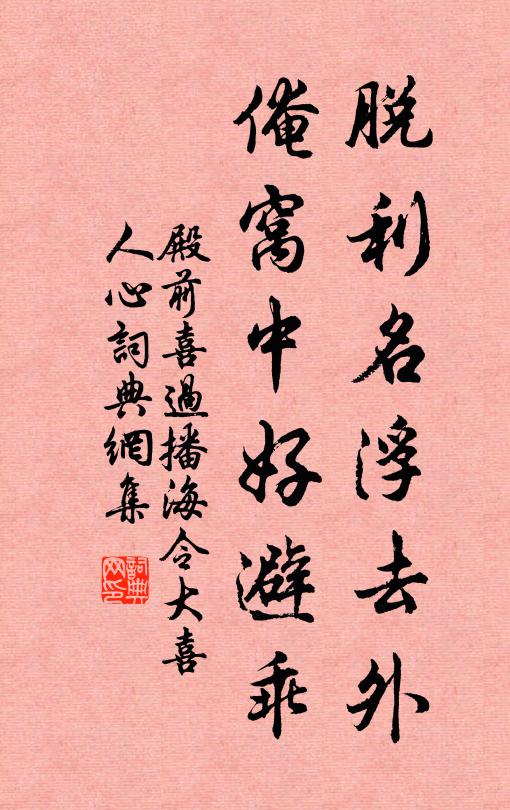 脱利名浮去外
俺窝中好避乖
殿前喜過播海令大喜
人心詞典網集
詞典网印